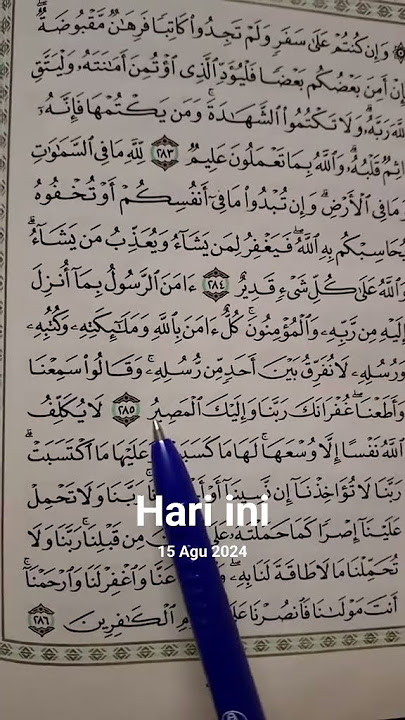 وَإِن كُنتُمْ عَلَىٰ سَفَرٍ وَلَمْ تَجِدُوا۟ كَاتِبًا فَرِهَٰنٌ مَّقْبُوضَةٌ ۖ
إِنْ أَمِنَ بَعْضُكُم بَعْضًا فَلْيُؤَدِّ ٱلَّذِى ٱؤْتُمِنَ أَمَٰنَتَهُۥ وَلْيَتَّقِ
للَّهَ رَبَّهُۥ ۗ وَلَا تَكْتُمُوا۟ ٱلشَّهَٰدَةَ ۚ وَمَن يَكْتُمْهَا فَإِنَّهُۥٓ
اثِمٌ قَلْبُهُۥ ۗ وَٱللَّهُ بِمَا تَعْمَلُونَ عَلِيمٌ ٢٨٣ لِّلَّهِ مَا فِى ٱلسَّمَٰوَٰتِ
وَمَا فِى ٱلْأَرْضِ ۗ وَإِن تُبْدُوا۟ مَا فِىٓ أَنفُسِكُمْ أَوْ تُخْفُوهُ
يُحَاسِبْكُم بِهِ ٱللَّهُ ۖ فَيَغْفِرُ لِمَن يَشَآءُ وَيُعَذِّبُ مَن يَشَآءُ ۗ
وَٱللَّهُ عَلَىٰ كُلِّ شَىْءٍ قَدِيرٌ ٢٨٤ ءَامَنَ ٱلرَّسُولُ بِمَآ أُنزِلَ
إِلَيْهِ مِن رَّبِّهِۦ وَٱلْمُؤْمِنُونَ ۚ كُلٌّ ءَامَنَ بِٱللَّهِ وَمَلَٰٓئِكَتِهِۦ وَكُتُبِهِۦ
وَرُسُلِهِۦ لَا نُفَرِّقُ بَيْنَ أَحَدٍ مِّن رُّسُلِهِۦ ۚ وَقَالُوا۟ سَمِعْنَا
وَأَطَعْنَا ۖ غُفْرَانَكَ رَبَّنَا وَإِلَيْكَ ٱلْمَصِيرُ ٢٨٥ لَا يُكَلِّفُ
ٱللَّهُ نَفْسًا إِلَّا وُسْعَهَا ۚ لَهَا مَا كَسَبَتْ عَلَيْهَا مَا ٱكْتَسَبَتْ ۗ
رَبَّنَا لَا تُؤَاخِذْنَآ إِن نَّسِينَآ أَوْ رَبَّنَا وَلَا تَحْمِلْ
Hari ini
عَلَيْنَآ إِصْرًا كَمَا حَمَلْتَهُۥ مِن قَبْلِنَا ۚ رَبَّنَا وَلَا
15 Agu 2024
تُحَمِّلْنَا مَا لَا طَاقَةَ لَنَا بِهِۦ ۖ عَنَّا وَٱغْفِرْ لَنَا وَٱرْحَمْنَآ ۚ
أَنتَ مَوْلَىٰنَا فَٱنصُرْنَا ٱلْكَٰفِرِينَ ٢٨٦